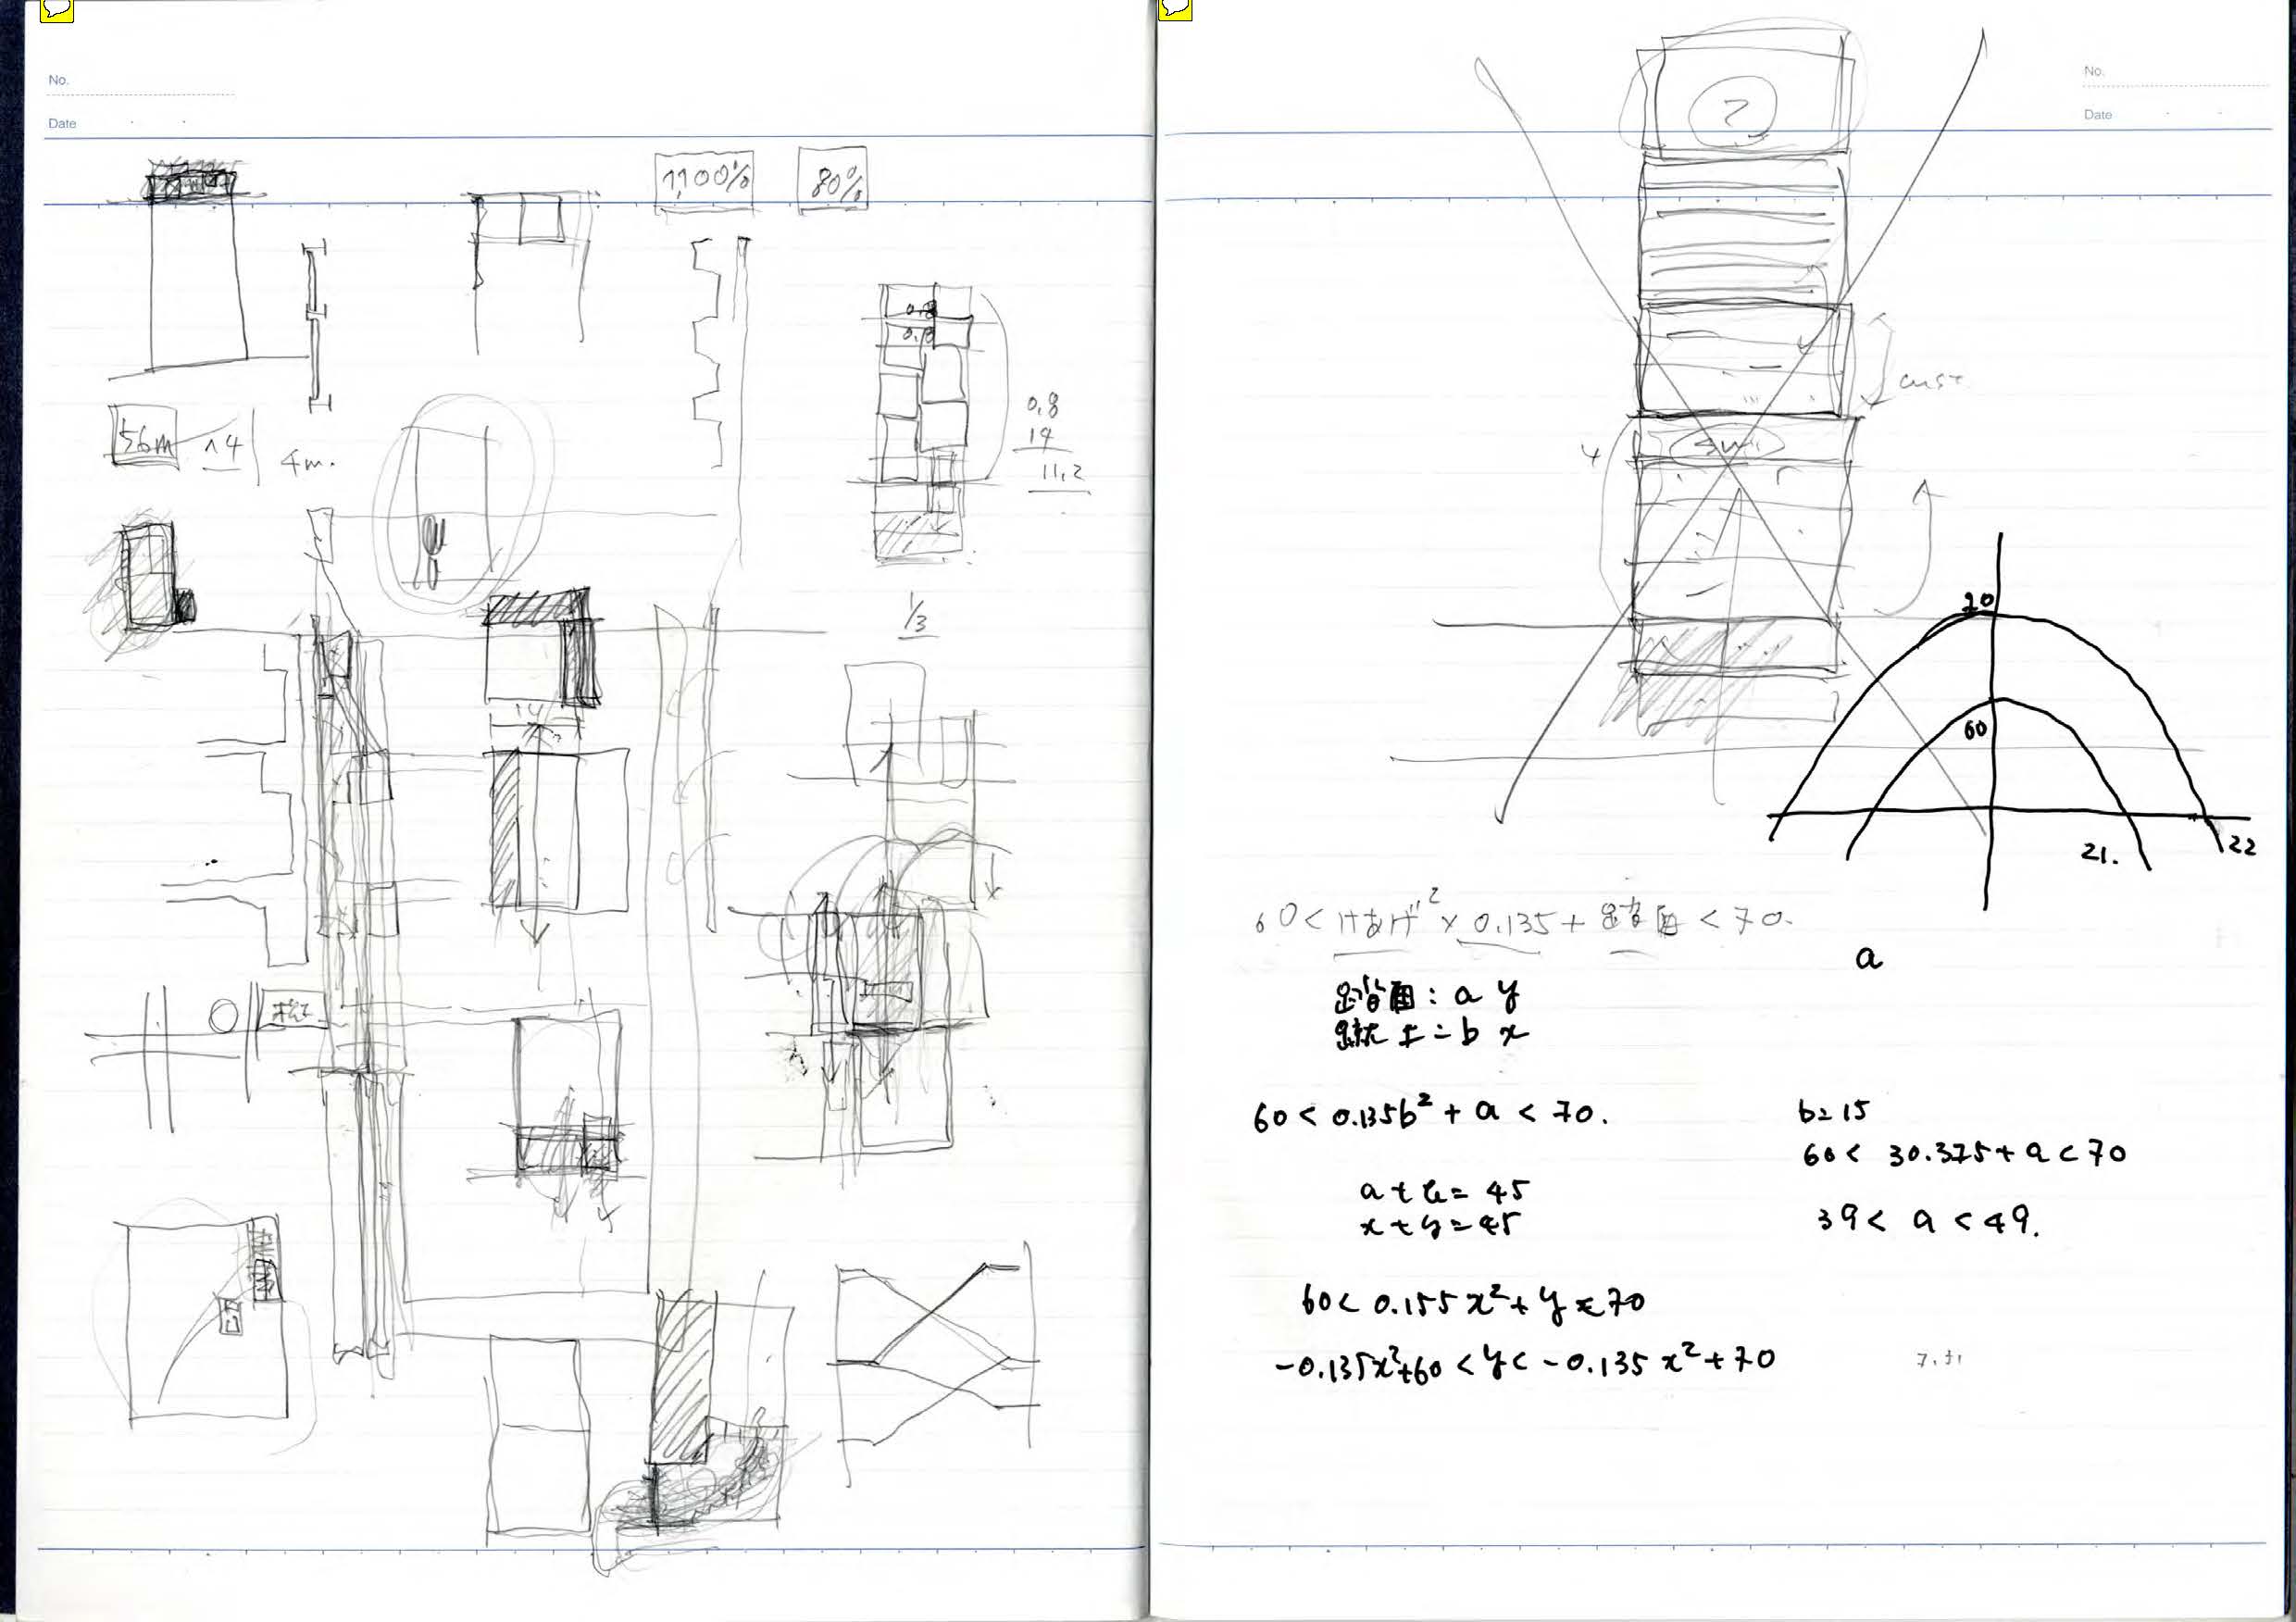 No.
Date
1,100%
80%
56m 14 4m.
0.8
0.8
0,8
14
11,2
1/3
14
No.
Date
?
4
70
60
21.
22
60 < けあげ² × 0.135 + 踏面 < 70.
a
踏面: a y
蹴上 = b x
60 < 0.135b² + a < 70.
b=15
60 < 30.375 + a < 70
x+y=45
39 < a < 49.
60 < 0.155x² + y < 70
-0.135x²+60 < y < -0.135x²+70